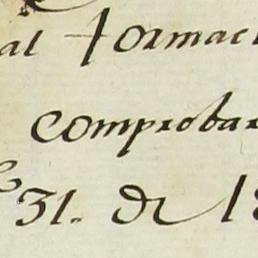 al formac
comprobar
31. de 18